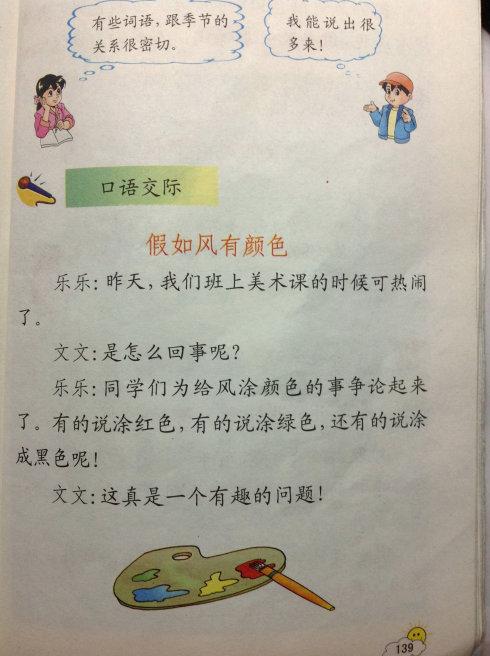 有些词语，跟季节的
关系很密切。
我能说出很
多来！
口语交际
假如风有颜色
乐乐：昨天，我们班上美术课的时候可热闹
了。
文文：是怎么回事呢？
乐乐：同学们为给风涂颜色的事争论起来
了。有的说涂红色，有的说涂绿色，还有的说涂
成黑色呢！
文文：这真是一个有趣的问题！
139